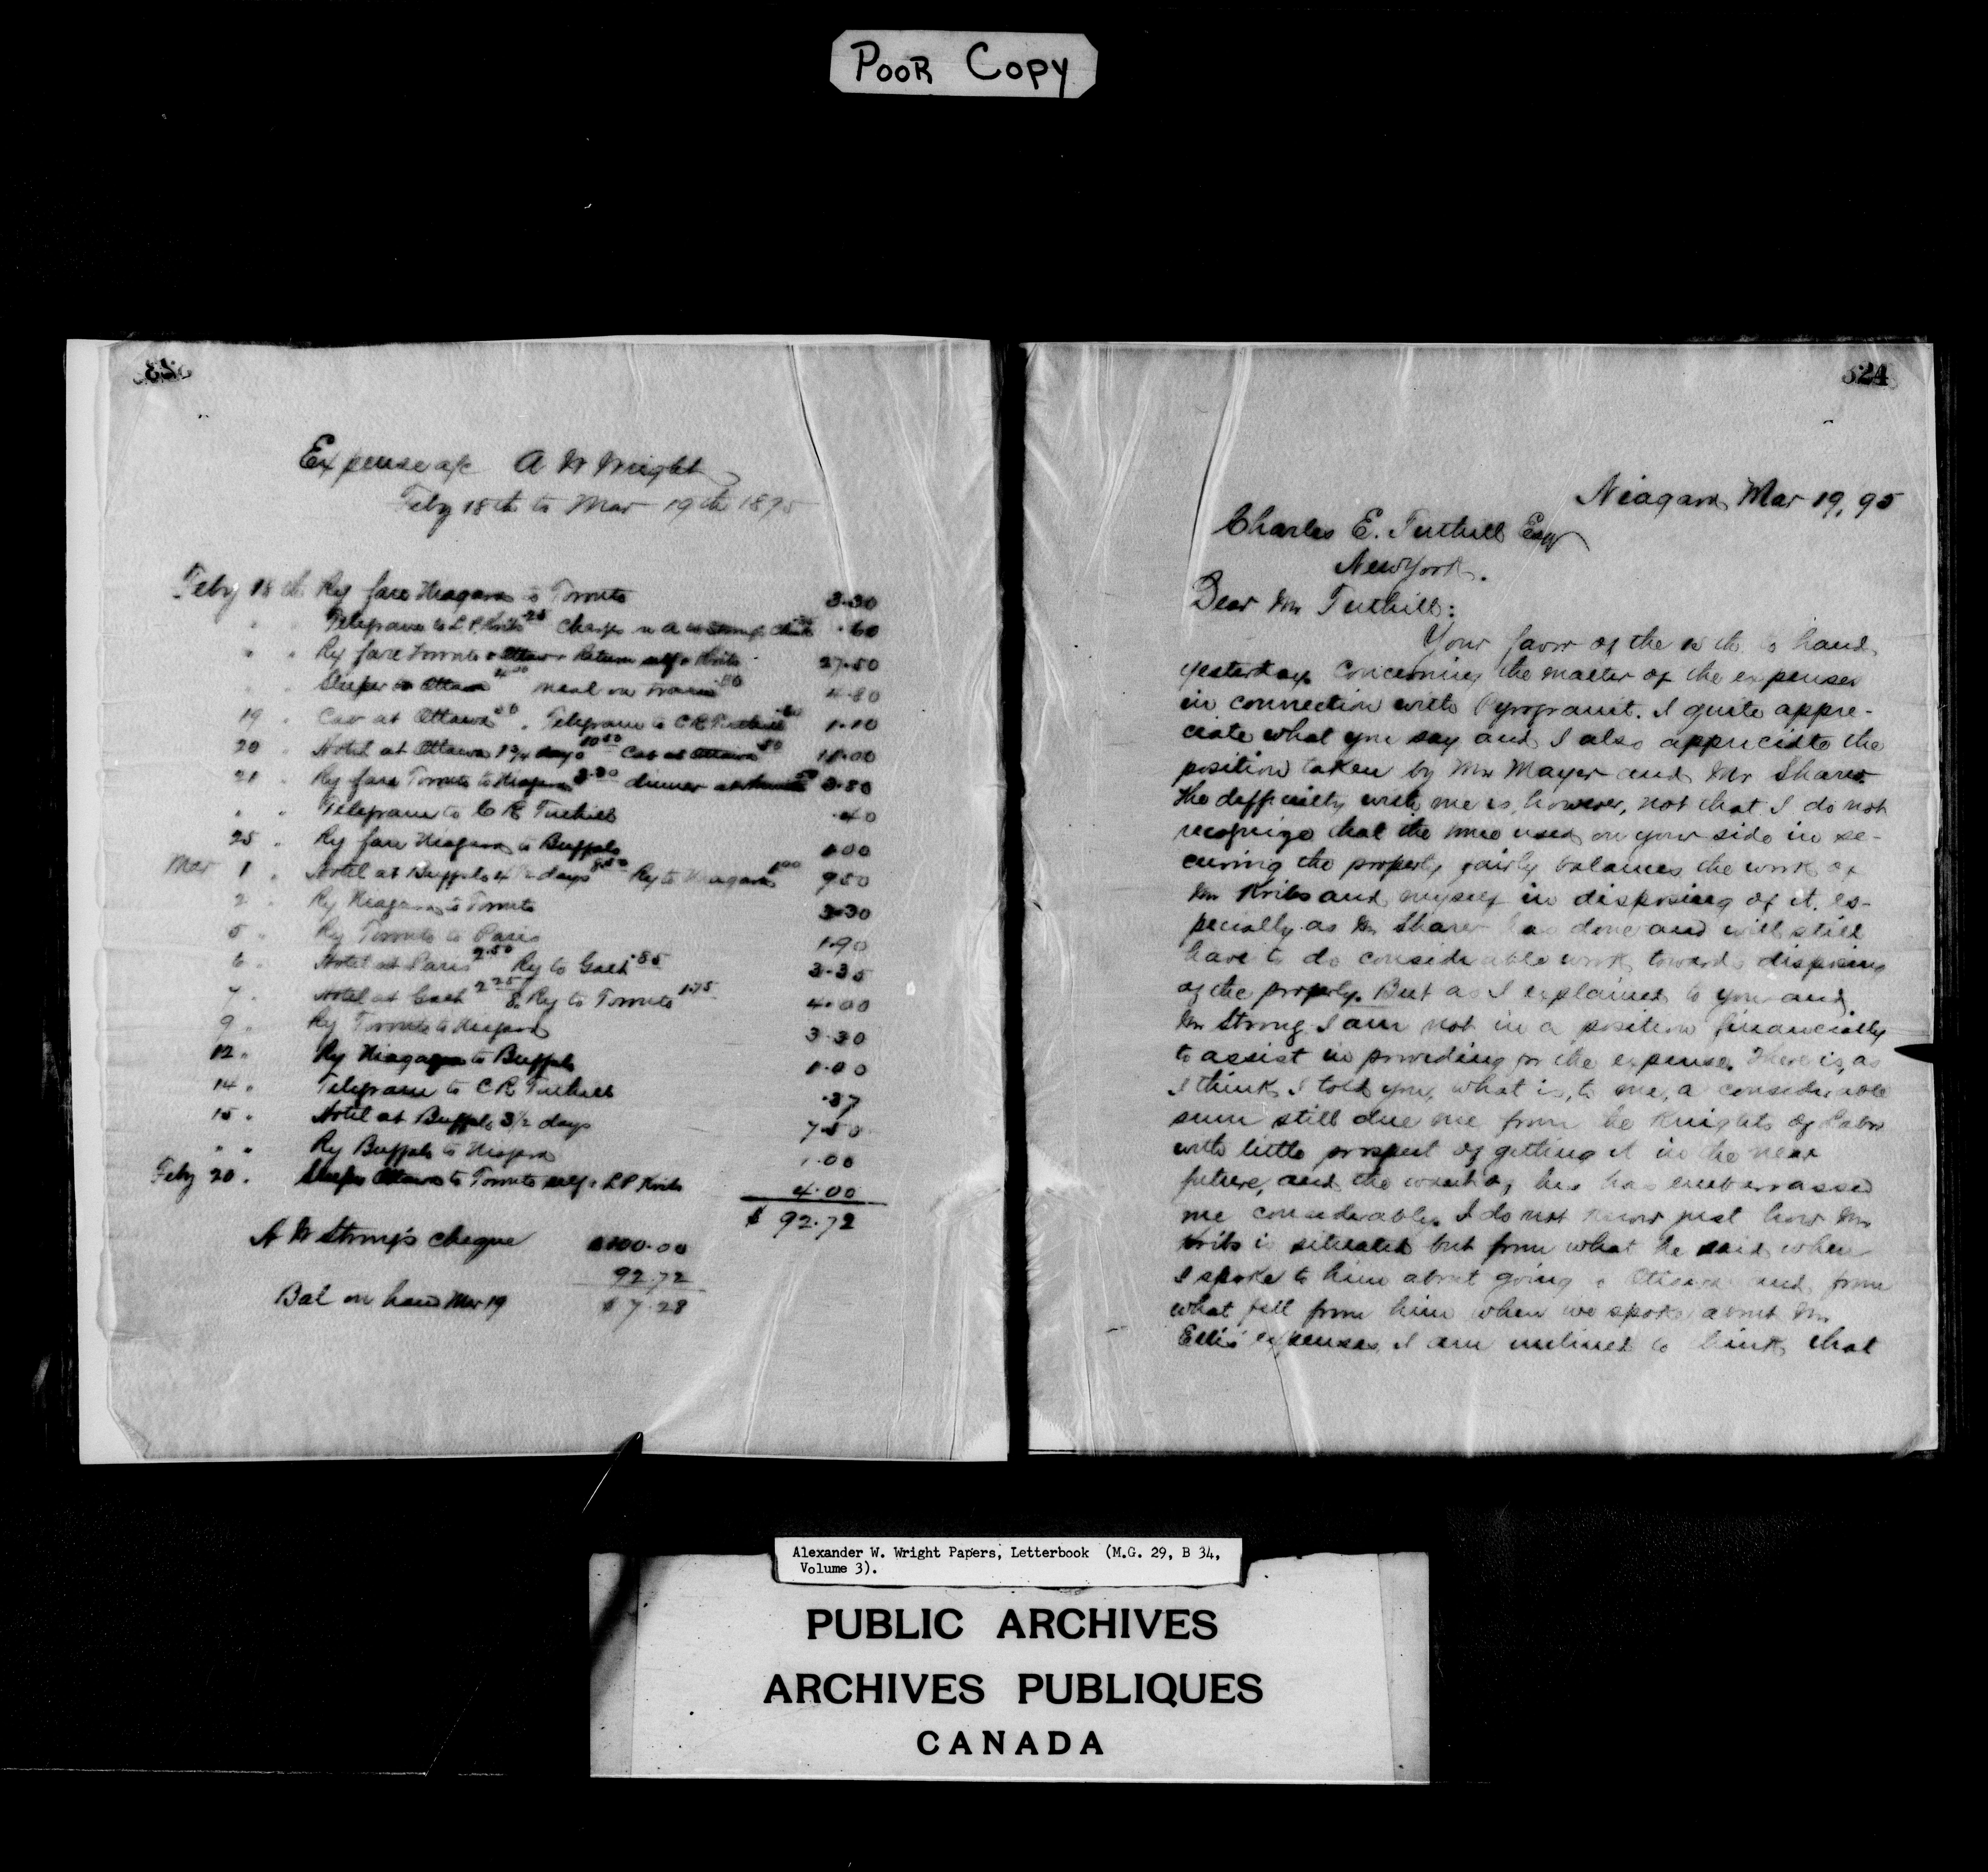 POOR COPY
323
Expense a/c A W Wright
Feby 18th to Mar 19th 1895
Feby 18th Ry fare Niagara to Toronto 3.30
" " Telegram to L P Kribs .25 Charges on A W Strong cheque .60
" " Ry fare Toronto to Ottawa & Return self & Kribs 27.50
" " Sleeper to Ottawa 4.00 meal on train .80 4.80
19 " Cab at Ottawa .50 Telegram to C R Tuthill .60 1.10
20 " Hotel at Ottawa 1 3/4 days 10.50 Cab at Ottawa .50 11.00
21 " Ry fare Toronto to Niagara 3.30 dinner at Toronto .50 3.80
" " Telegram to C R Tuthill .40
25 " Ry fare Niagara to Buffalo 1.00
Mar 1 " Hotel at Buffalo 4 1/2 days 8.50 Ry to Niagara 1.00 9.50
2 " Ry Niagara to Toronto 3.30
5 " Ry Toronto to Paris 1.90
6 " Hotel at Paris 2.50 Ry to Galt .85 3.35
7 " Hotel at Galt 2.25 & Ry to Toronto 1.75 4.00
9 " Ry Toronto to Niagara 3.30
12 " Ry Niagara to Buffalo 1.00
14 " Telegram to C R Tuthill .37
15 " Hotel at Buffalo 3 1/2 days 7.50
" " Ry Buffalo to Niagara 1.00
Feby 20 " Sleeper Ottawa to Toronto self & L P Kribs 4.00
$ 92.72
A W Strong's cheque $100.00
92.72
Bal on hand Mar 19 $ 7.28
324
Niagara Mar 19, 95
Charles E. Tuthill Esq
New York.
Dear Mr Tuthill:
Your favor of the to hand
yesterday concerning the matter of the expenses
in connection with Pyrogranit. I quite appre-
ciate what you say and I also appreciate the
position taken by Mr Mayer and Mr Sharer.
The difficulty with me is, however, not that I do not
recognize that the time used on your side in se-
curing the property fairly balances the work of
Mr Kribs and myself in disposing of it, es-
pecially as Mr Sharer has done and will still
have to do considerable work towards disposing
of the property. But as I explained to you and
Mr Strong I am not in a position financially
to assist in providing for the expenses. There is, as
I think I told you, what is, to me, a considerable
sum still due me from the Knights of Labor
with little prospect of getting it in the near
future, and the want of this has embarrassed
me considerably. I do not know just how Mr
Kribs is situated but from what he said when
I spoke to him about going to Ottawa and from
what fell from him when we spoke about Mr
Ellis' expenses, I am inclined to think that
Alexander W. Wright Papers, Letterbook (M.G. 29, B 34,
Volume 3).
PUBLIC ARCHIVES
ARCHIVES PUBLIQUES
CANADA